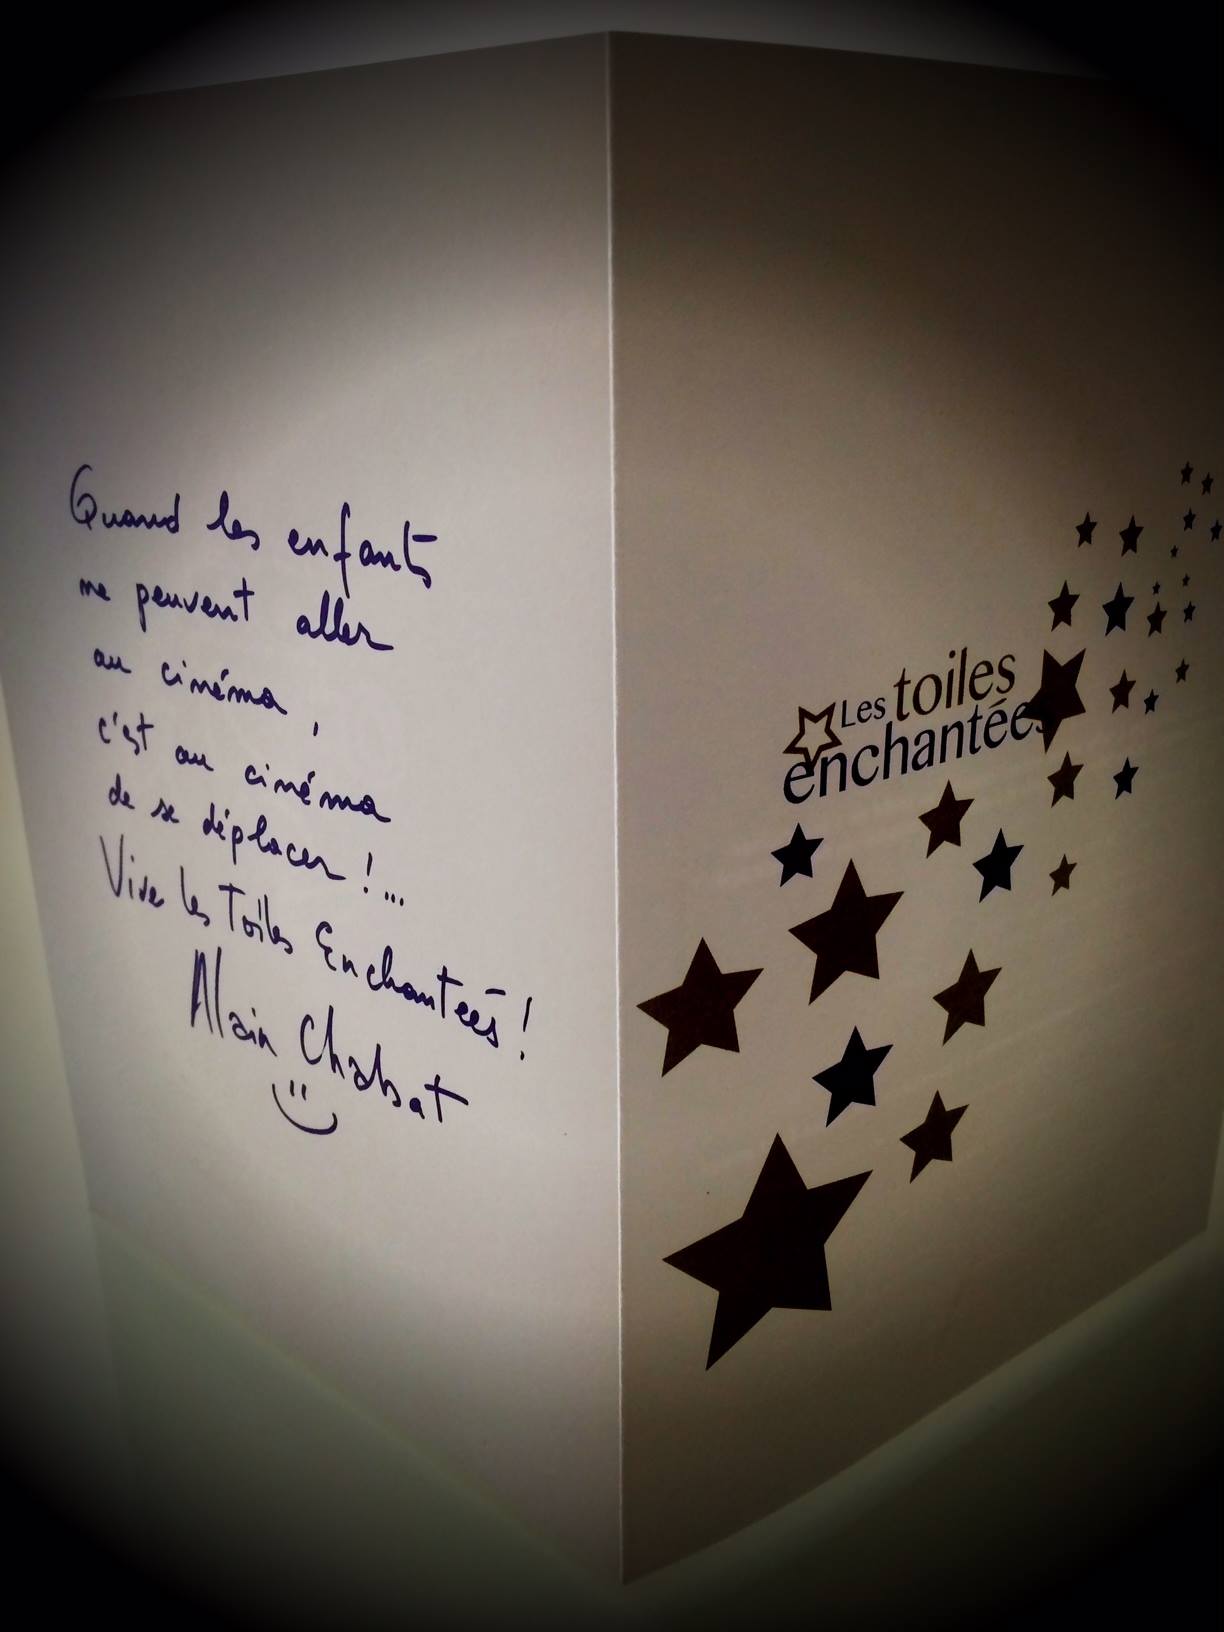 Quand les enfants
ne peuvent aller
au cinéma,
c'est au cinéma
de se déplacer !...
Vive les Toiles Enchantées !
Alain Chabat
Les toiles
enchantées